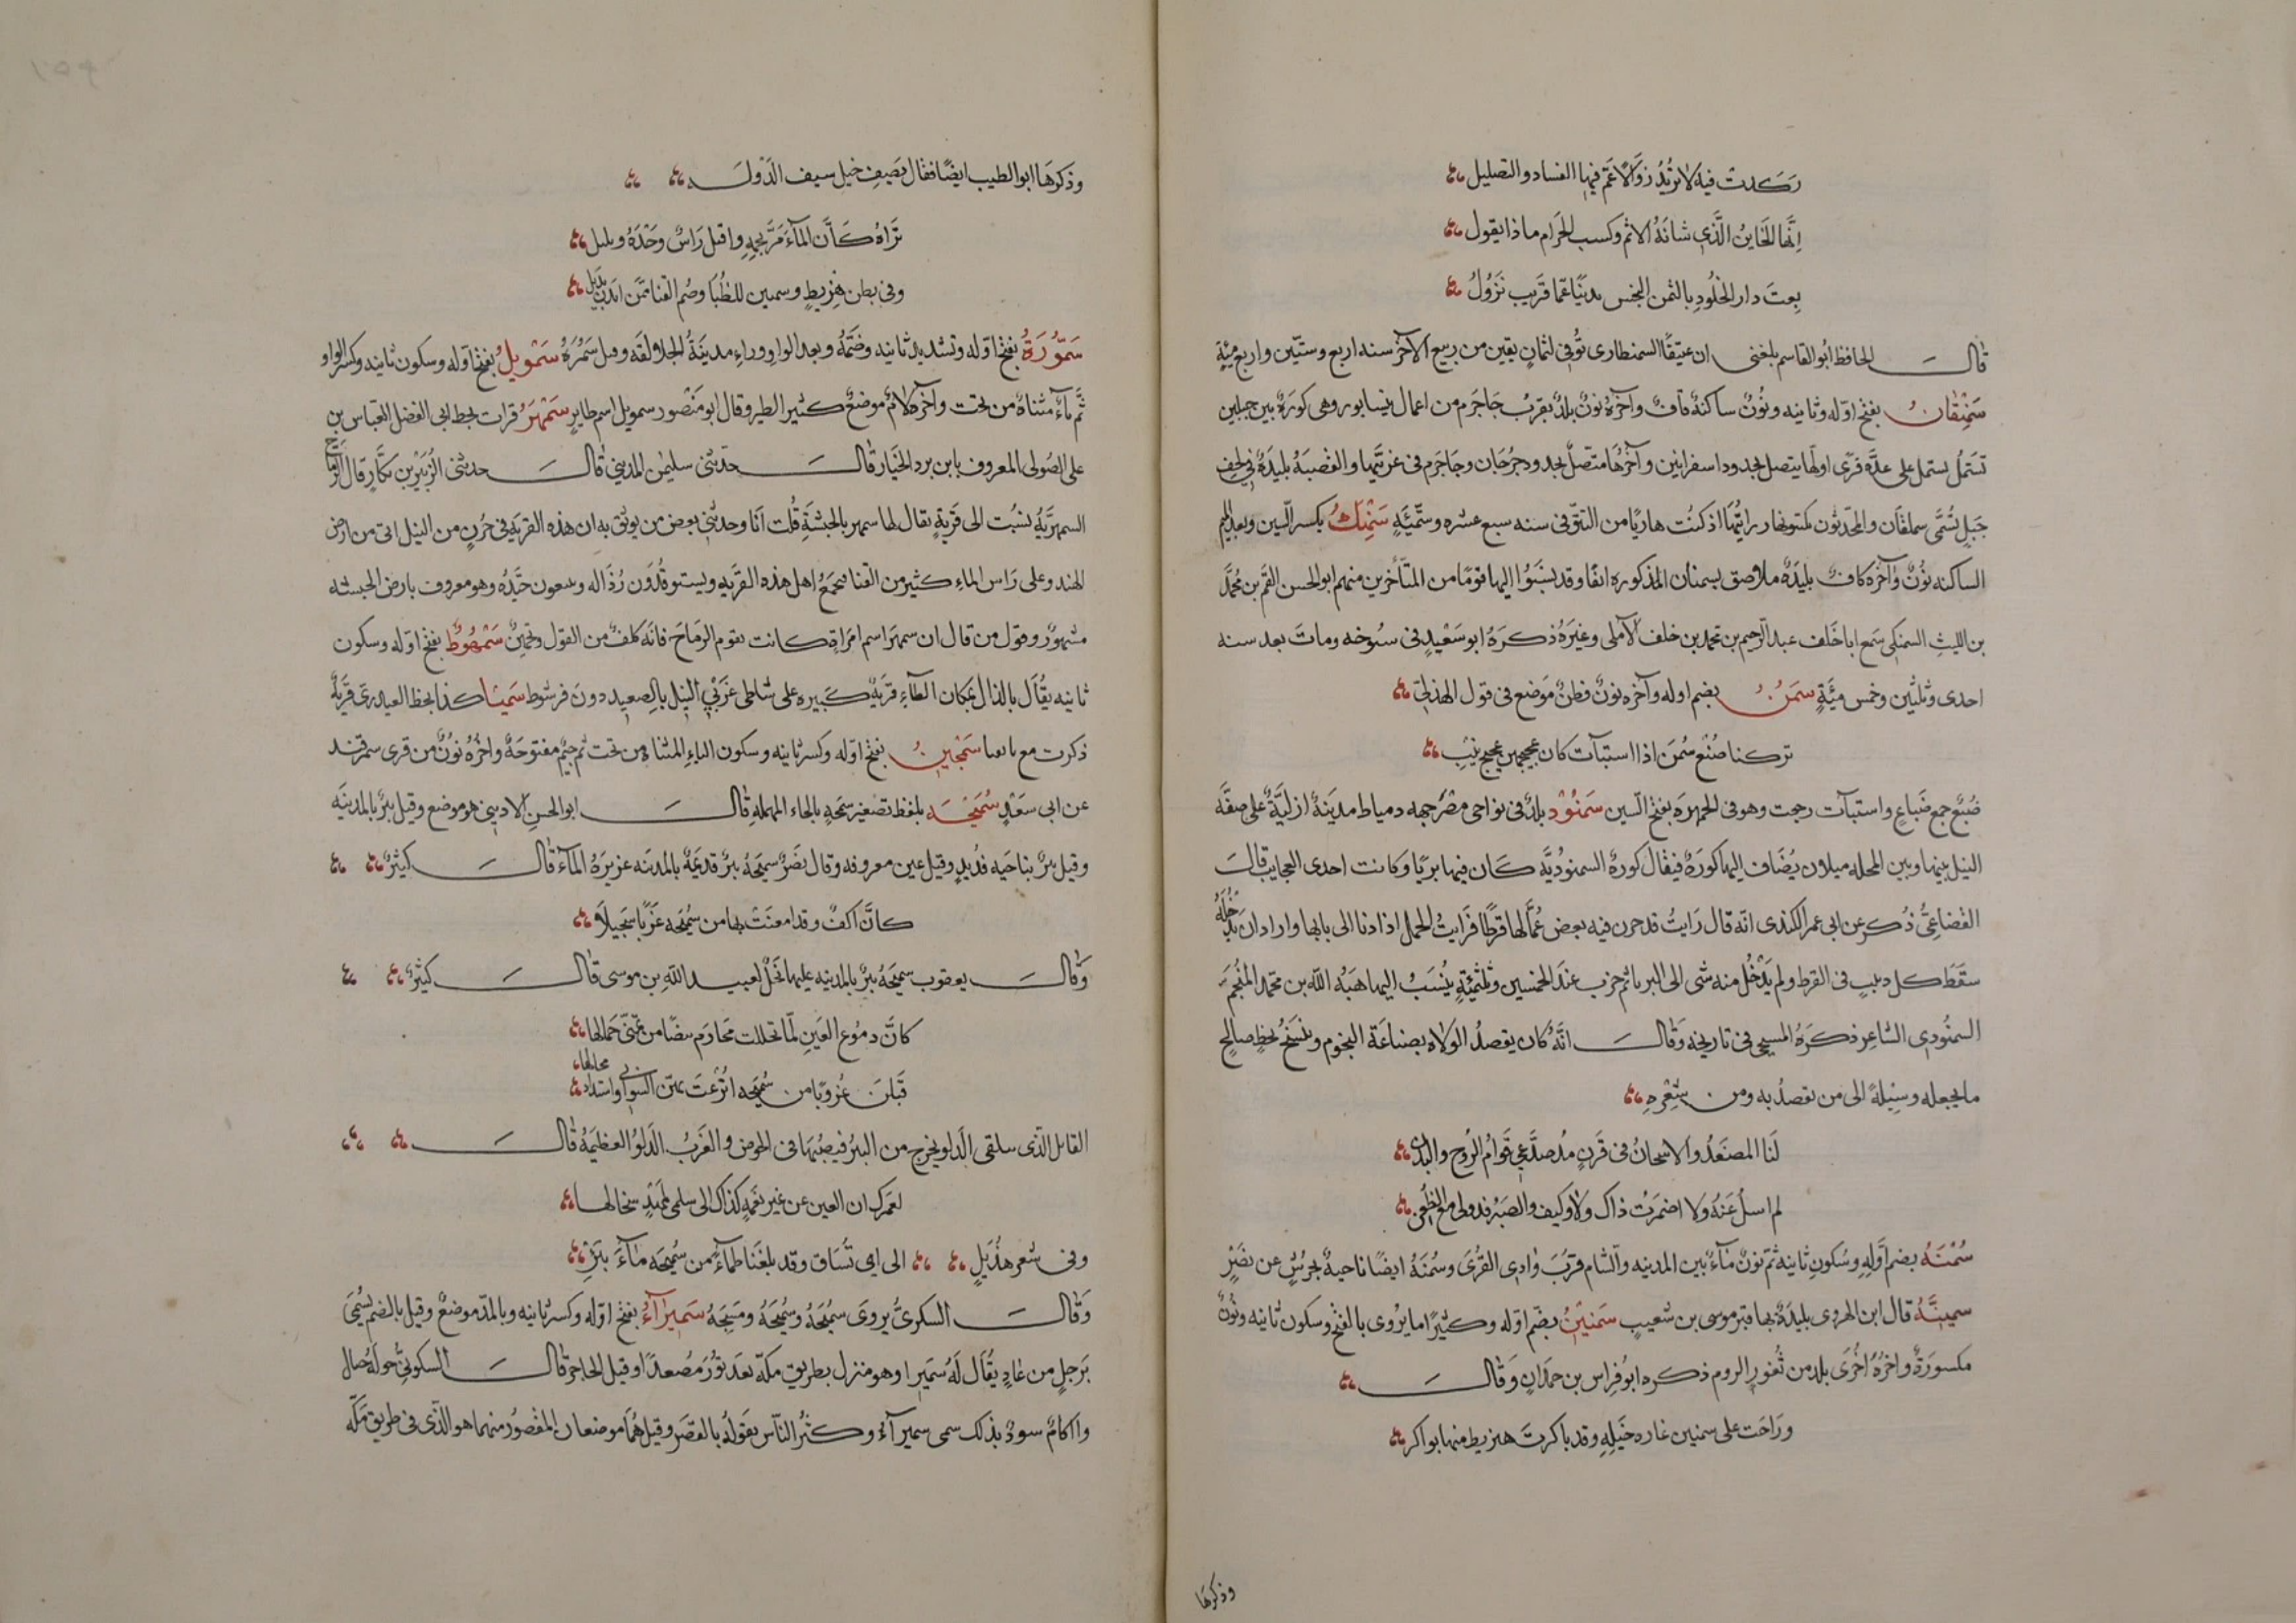 ركدت فيه لا تريد زوالا عم فيها الفساد والتضليل
انها الخاين الذي شانه الاثم وكسب الحرام ماذا يقول
بعت دار الخلود بالثمن البخس بدنيا عما قريب نزول
قال الحافظ ابو القاسم بلغني ان عتيقا السمنطارى توفي لثمان بقين من ربيع الآخر سنه اربع وستين واربع مئة
سمنقان بفتح اوله وثانيه ونون ساكنة قاف وآخره نون بلد بقرب جاجرم من اعمال نيسابور وهي كورة بين جبلين
تشتمل يستمل على عدة قرى اولها يتصل بحدود اسفراين وآخرها متصل بحدود جرجان وجاجرم في غربيها والقصبة بليدة في لحف
جبل تسمى سملقان والمحدثون يكتبونها ورايتها اذ كنت هاربا من التتر في سنه سبع عشره وستمئة سمنك بكسر السين وبعد الميم
الساكنه نون وآخره كاف بليدة ملاصق بسمنان المذكوره انفا وقد ينسبوا اليها قوما من المتأخرين منهم ابو الحسن القم بن محمد
بن الليث السمنكي سمع ابا خلف عبد الرحيم بن محمد بن خلف الآملي وغيره ذكره ابو سعيد في سنوخه ومات بعد سنه
احدى وثلثين وخمس مئة سمن بضم اوله وآخره نون فطن موضع في قول الهذلي
تركنا ضبع سمن اذا استبآت كان عجيجهن عجيج نيب
ضبع جمع ضباع واستبآت رجت وهو في الجمهرة بفتح السين سمنود بلد في نواحي مصر جهه دمياط مدينة ازلية على ضفة
النيل بينها وبين المحله ميلان يضاف اليها كورة فيقال كورة السمنودية كان فيها بربا وكانت احدى العجايب قال
القضاعي ذكر عن ابي عمر الكندي انه قال رايت قد خزن فيه بعض عمالها قرطا فرايت الحمل اذا دنا الى بابها واراد ان يدخله
سقط كل دبيب في القرط ولم يدخل منه شي الى البربا ثم خرب عند الخمسين وثلثمئة ينسب اليها هبة الله بن محمد المنجم
السمنودي الشاعر ذكره المسبحي في تاريخه وقال انه كان يقصد الولاه بصناعة النجوم وينسخ بخط صالح
ما يجعله وسيلة الى من يقصد به ومن شعره
لنا المصعد والاسحان في قرن مذ صد عني قوام الروح والبدن
لم اسل عنه ولا اضمرت ذاك ولا وكيف والصبر قد ولى مع الظعن
سمنة بضم اوله وسكون ثانيه ثم نون مآء بين المدينه والشام قرب وادي القرى وسمنة ايضا ناحية بجرش عن نصر
سمينه قال ابن الهروي بليدة بها قبر موسى بن شعيب سمنين بضم اوله وكثيرا ما يروى بالفتح وسكون ثانيه ونون
مكسورة واخره اخرى بلد من ثغور الروم ذكره ابو فراس بن حمدان وقال
وراحت على سمنين غاره خيله وقد باكرت هنزيط منها بواكر
وذكرها
وذكرها ابو الطيب ايضا فقال يصف خيل سيف الدوله
تراه كأن المآء مر بجمه واقبل راس وحده وبليل
وفي بطن هنزيط وسمنين للظبا وصم القنا ممن ابدن بديل
سمورة بفتح اوله وتشديد ثانيه وضمه وبعد الواو وراء مدينة الجلالقه وقيل سمرة سمويل بفتح اوله وسكون ثانيه وكسر الواو
ثم يآء مثناة من تحت وآخره لام موضع كثير الطير وقال ابو منصور سمويل اسم طاير سمهر قرات بخط ابي الفضل العباس بن
على الصولي المعروف بابن برد الخيار قال حدثني سليمن المديني قال حدثني الزبير بن بكار قال الرماح
السمهرية نسبت الى قرية يقال لها سمهر بالحبشة قلت انا وحدثني بعض من يوثق به ان هذه القرية في جزن من النيل اتى من ارض
الهند وعلى راس الماء كثير من القنا يجمع اهل هذه القريه ويستوقدون رذاله ويبيعون جيده وهو معروف بارض الحبشه
مشهور وقول من قال ان سمهر اسم امراة كانت تقوم الرماح فانه كلف من القول وتخمين سمهوط بفتح اوله وسكون
ثانيه يقال بالدال بمكان الطاء قرية كبيره على شاطى غربي النيل بالصعيد دون فرشوط سميسا كذا بخط العبدري قرية
ذكرت مع بانعا سمجين بفتح اوله وكسر ثانيه وسكون الياء المثناة من تحت ثم جيم مفتوحة واخره نون من قرى سمرقند
عن ابي سعد سميحه بلفظ تصغير سمحه بالحاء المهمله قال ابو الحسن الاديبي هو موضع وقيل بئر بالمدينه
وقيل بئر بناحيه قديد وقيل عين معروفه وقال نصر سميحة بئر قديمة بالمدينه غزيرة المآء قال كثير
كان اكف وقد امعنت بها من سميحه غربا سجيلا
وقال يعقوب سميحة بئر بالمدينه عليها نخل لعبيد الله بن موسى قال كثير
كان دموع العين لما تحللت مخارم بيضا من تمني جمالها
قبلن غروبا من سميحه اترعت بهن السواني واستدار محالها
القابل الذي يتلقى الدلو يخرج من البئر فيصبها في الحوض والغرب الدلو العظيمة قال
لعمرك ان العين عن غير نعمة كذاك الى سلمى لمهد سخالها
وفي شعر هذيل الى اي نساق وقد بلغنا ظماء من سميحه مآء بثر
وقال السكري يروى سميحة وسميحة ومسيحة سميرآء بفتح اوله وكسر ثانيه وبالمد موضع وقيل بالضم يسمى
برجل من عاد يقال له سميرا وهو منزل بطريق مكة بعد توز مصعدا وقيل الحاجر قال السكوني حوله جبال
واكام سود بذلك سمي سميرآء وكثر الناس يقوله بالقصر وقيل هما موضعان المقصور منهما هو الذي في طريق مكة